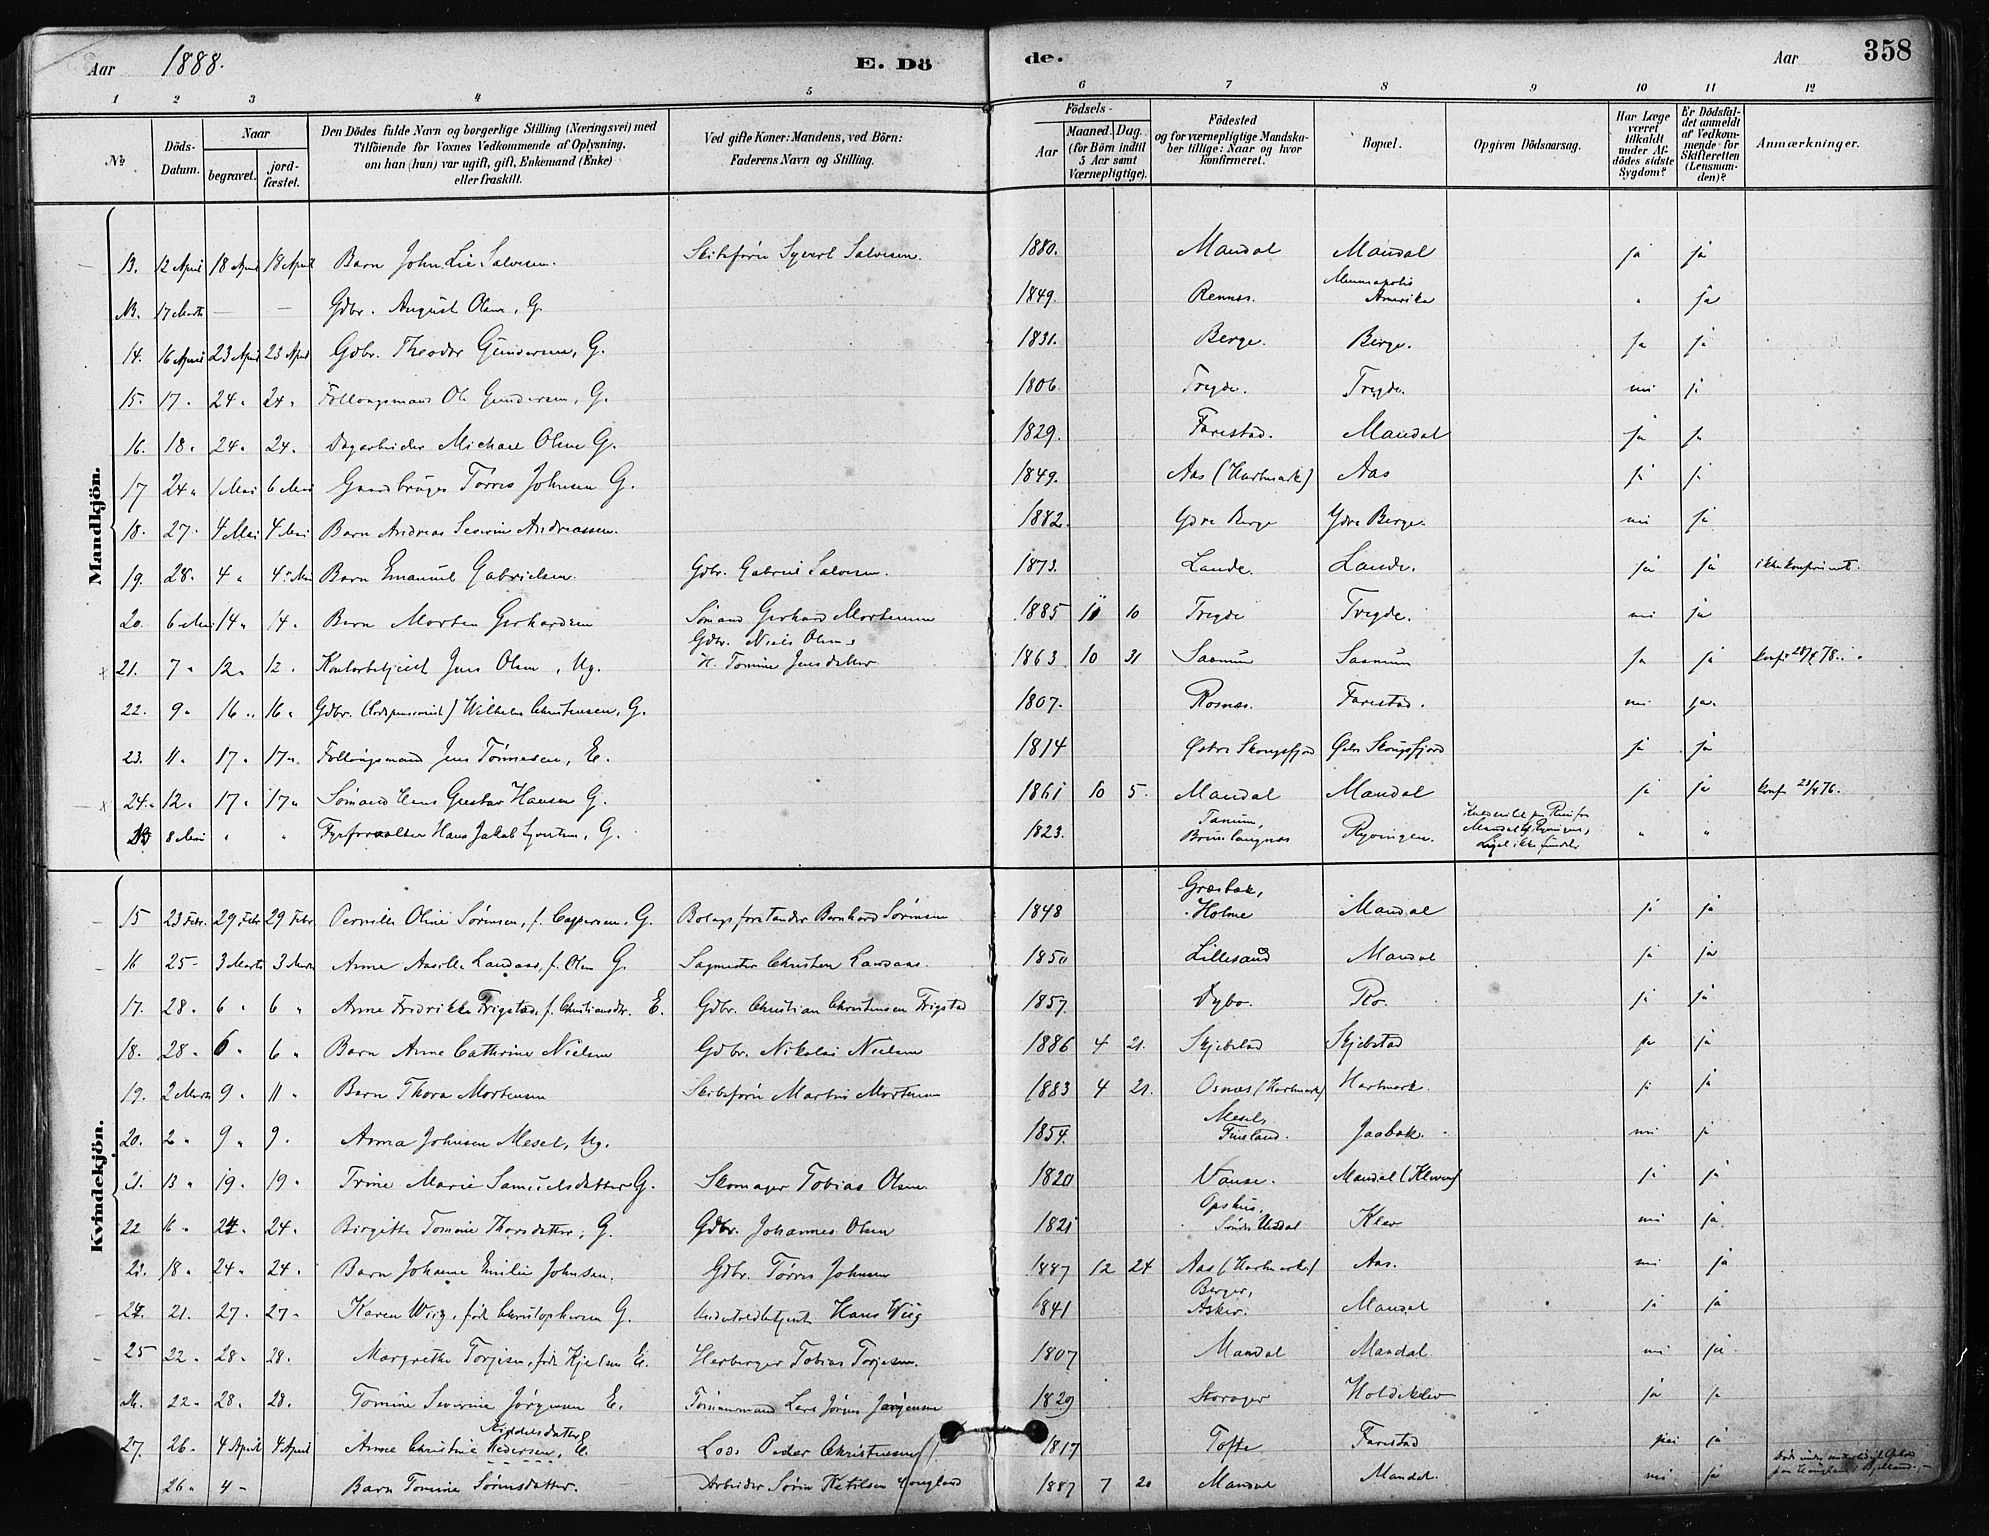 Aar 1888. E. Dö de. Aar 358
1 2 3 4 5 6 7 8 9 10 11 12
No
Döds-Datum.
Naar
begravet.
jord-fæstet.
Den Dödes fulde Navn og borgerlige Stilling (Næringsvei) med
Tilföiende for Voxnes Vedkommende af Oplysning,
om han (hun) var ugift, gift, Enkemand (Enke)
eller fraskilt.
Ved gifte Koner: Mandens, ved Börn:
Faderens Navn og Stilling.
Födsels-
Aar
Maaned. Dag.
(for Börn indtil
5 Aar samt
Værnepligtige).
Födested
og for værnepligtige Mandska-
ber tillige: Naar og hvor
konfirmeret.
Bopæl.
Opgiven Dödsaarsag.
Har Læge
været
tilkaldt
under Af-
dödes sidste
Sygdom?
Er Dödsfal-
det anmeldt
af Vedkom-
mende for
Skifteretten
(Lensman-
den)?
Anmærkninger.
Mandkjön.
13. 12 April 18 April 18 April Barn John Lie Salvesen. Skibsfører Syvert Salvesen. 1880. Mandal Mandal ja ja
17 Marts — — Gdbr. August Olsen, G. 1849. Minneapolis Amerika " ja
14. 16 April 23 April 23 April Gdbr. Theodor Gundersen, G. 1831. Berge. Berge. ja ja
15. 17 " 24 " 24 " Føllougsmand Ole Gundersen, G. 1806. Tregde. Tregde. nei ja
16. 18 " 24 " 24 " Dagarbeider Michael Olsen G. 1829. Farestad. Mandal ja ja
17 24 " 1 Mai 6 Mai Gaardbruger Tørres Johnsen G. 1849. Aas (Hartmark) Aas ja ja
18. 27 " 4 Mai 4 Mai Barn Andreas Severin Andreassen. 1882. Ydre Berge Ydre Berge. nei ja
19. 28 " 4 " 4 " Mai Barn Emanuel Gabrielsen. Gdbr. Gabriel Salvesen. 1873. Lande. Lande. ja ja ikke konfirmeret.
20. 6 Mai 14 " 14 " Barn Morten Gerhardsen Sømand Gerhard Mortensen 1885 11 10 Tregde Tregde. nei ja
21. 7 " 12 " 12 " Kontorbetjent Jens Olsen, Ug. Gdbr. Niels Olsen & H. Tomine Jensdatter 1863 10 31 Sanum Sanum ja ja Konf. 78.
22. 9 " 16 " 16 " Gdbr. (Lodspensionist) Wilhelm Christensen, G. 1807. Rosnes. Farestad. nei ja.
23. 11 " 17 " 17 " Føllougsmand Jens Tønnesen, E. 1814 Østre Skougsfjord Østre Skougsfjord ja ja
24. 12 " 17 " 17 " Sømand Gustav Hansen G. 1861 10 5. Mandal Mandal ja ja Konf. 76.
8 Mai " " Fyrforvalter Hans Jakob G. 1823. Tanum, Brunlangnæs Ryvingen. Mandal til Ryvingen, Liget ikke fundet " "
Kvindekjön.
15 23 Febr. 29 Febr 29 Febr. Pernille Oline Sørensen, f. Caspersen, G. Bolagsforstander Bernhard Sørensen 1848 Græsbak, Holme Mandal ja ja
16 25 " 3 Marts 3 Marts Anne Landaas, f. Olsen G. Sagmester Christen Landaas. 1850 Lillesand Mandal ja ja
17. 28 " 6 " 6 " Anne Fredrikke Frigstad, f. Christiansdtr. E. Gdbr. Christian Christensen Frigstad 1857. Dybo. Ro. ja ja
18. 28 " 6 " 6 " Barn Anne Cathrine Nielsen Gdbr. Nikolai Nielsen 1886 4 21. Skjebstad Skjebstad ja ja
19. 2 Marts 9 " 11 " Barn Thora Mortensen Skibsfører Martin Mortensen 1883 4 21. Osnæs (Hartmark) Hartmark. ja ja
20. 2 " 9 " 9. Anna Johnsen Mesel, Ug. 1854. Mesel, Finsland. Jaabæk. nei ja
21. 13 " 19. 19 " Trine Marie Samuelsdatter G. Skomager Tobias Olsen. 1820 Vanse. Mandal (Kleven) ja ja
22 16 " 24 " 24 " Birgitte Tomine Thorsdatter, G. Gdbr. Johannes Olsen 1821 Opshus, Søndre Undal Klev nei ja.
23. 18 " 24 " 24 " Barn Johanne Emilie Johnsen. Gdbr. Tørres Johnsen 1887 12 24 Aas (Hartmark) Aas. nei ja
24. 21. 27 " 27 " Karen Wiig, født Christophersen G. Undertoldbetjent Hans Wiig 1841 Berger, Asker. Mandal ja ja
25 22 " 28 " 28. Margrethe Torjesen, født Kjelsen E. Herberger Tobias Torjesen. 1807 Mandal Mandal. nei ja
26. 22 " 28 " 28. Tomine Severine Jørgensen E. Tømmermand Lars Jørgen Jørgensen 1829 Storager Holdeklev ja ja
27. 26 " 4 April 4 April Anne Christine Pedersen, E. Lods Peder Christensen 1817 Tofte Farestad nei ja
26 " 4 " Barn Tomine Sørensdatter. Arbeider Sørin Ketilsen Hougland 1887 7 20 Mandal Mandal. nei ja